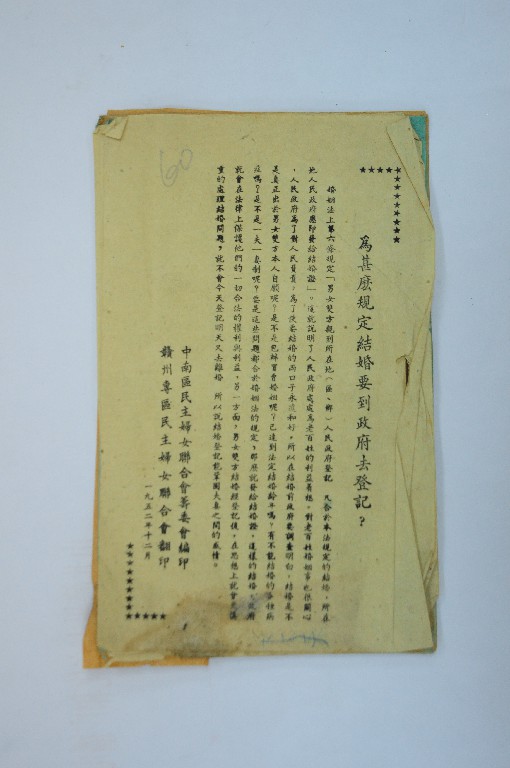 60
為甚麽規定結婚要到政府去登記？
婚姻法上第六條規定「男女雙方親到所在地（區、鄉）人民政府登記 凡合於本法規定的結婚，所在
地人民政府應即發給結婚證」。這就說明了人民政府處處為老百姓的利益着想。對老百姓婚姻事也很關心
，人民政府為了對人民負責，為了使要結婚的兩口子永遠和好，所以在結婚前政府要調查明白：結婚是不
是真正出於男女雙方本人自願呢？是不是包辦買賣婚姻呢？已達到法定結婚齡年嗎？有不能結婚的各種病
症嗎？是不是一夫一妻制呢？要是這些問題都合於婚姻法的規定，那麽就發給結婚證，這樣的結婚，政府
就會在法律上保護他們的一切合法的權利與利益。另一方面，男女雙方結婚經登記後，在思想上就會更慎
重的處理結婚問題，就不會今天登記明天又去離婚 所以說結婚登記能鞏固夫妻之間的感情。
中南區民主婦女聯合會籌委會編印
贛州專區民主婦女聯合會翻印
一九五二年十二月